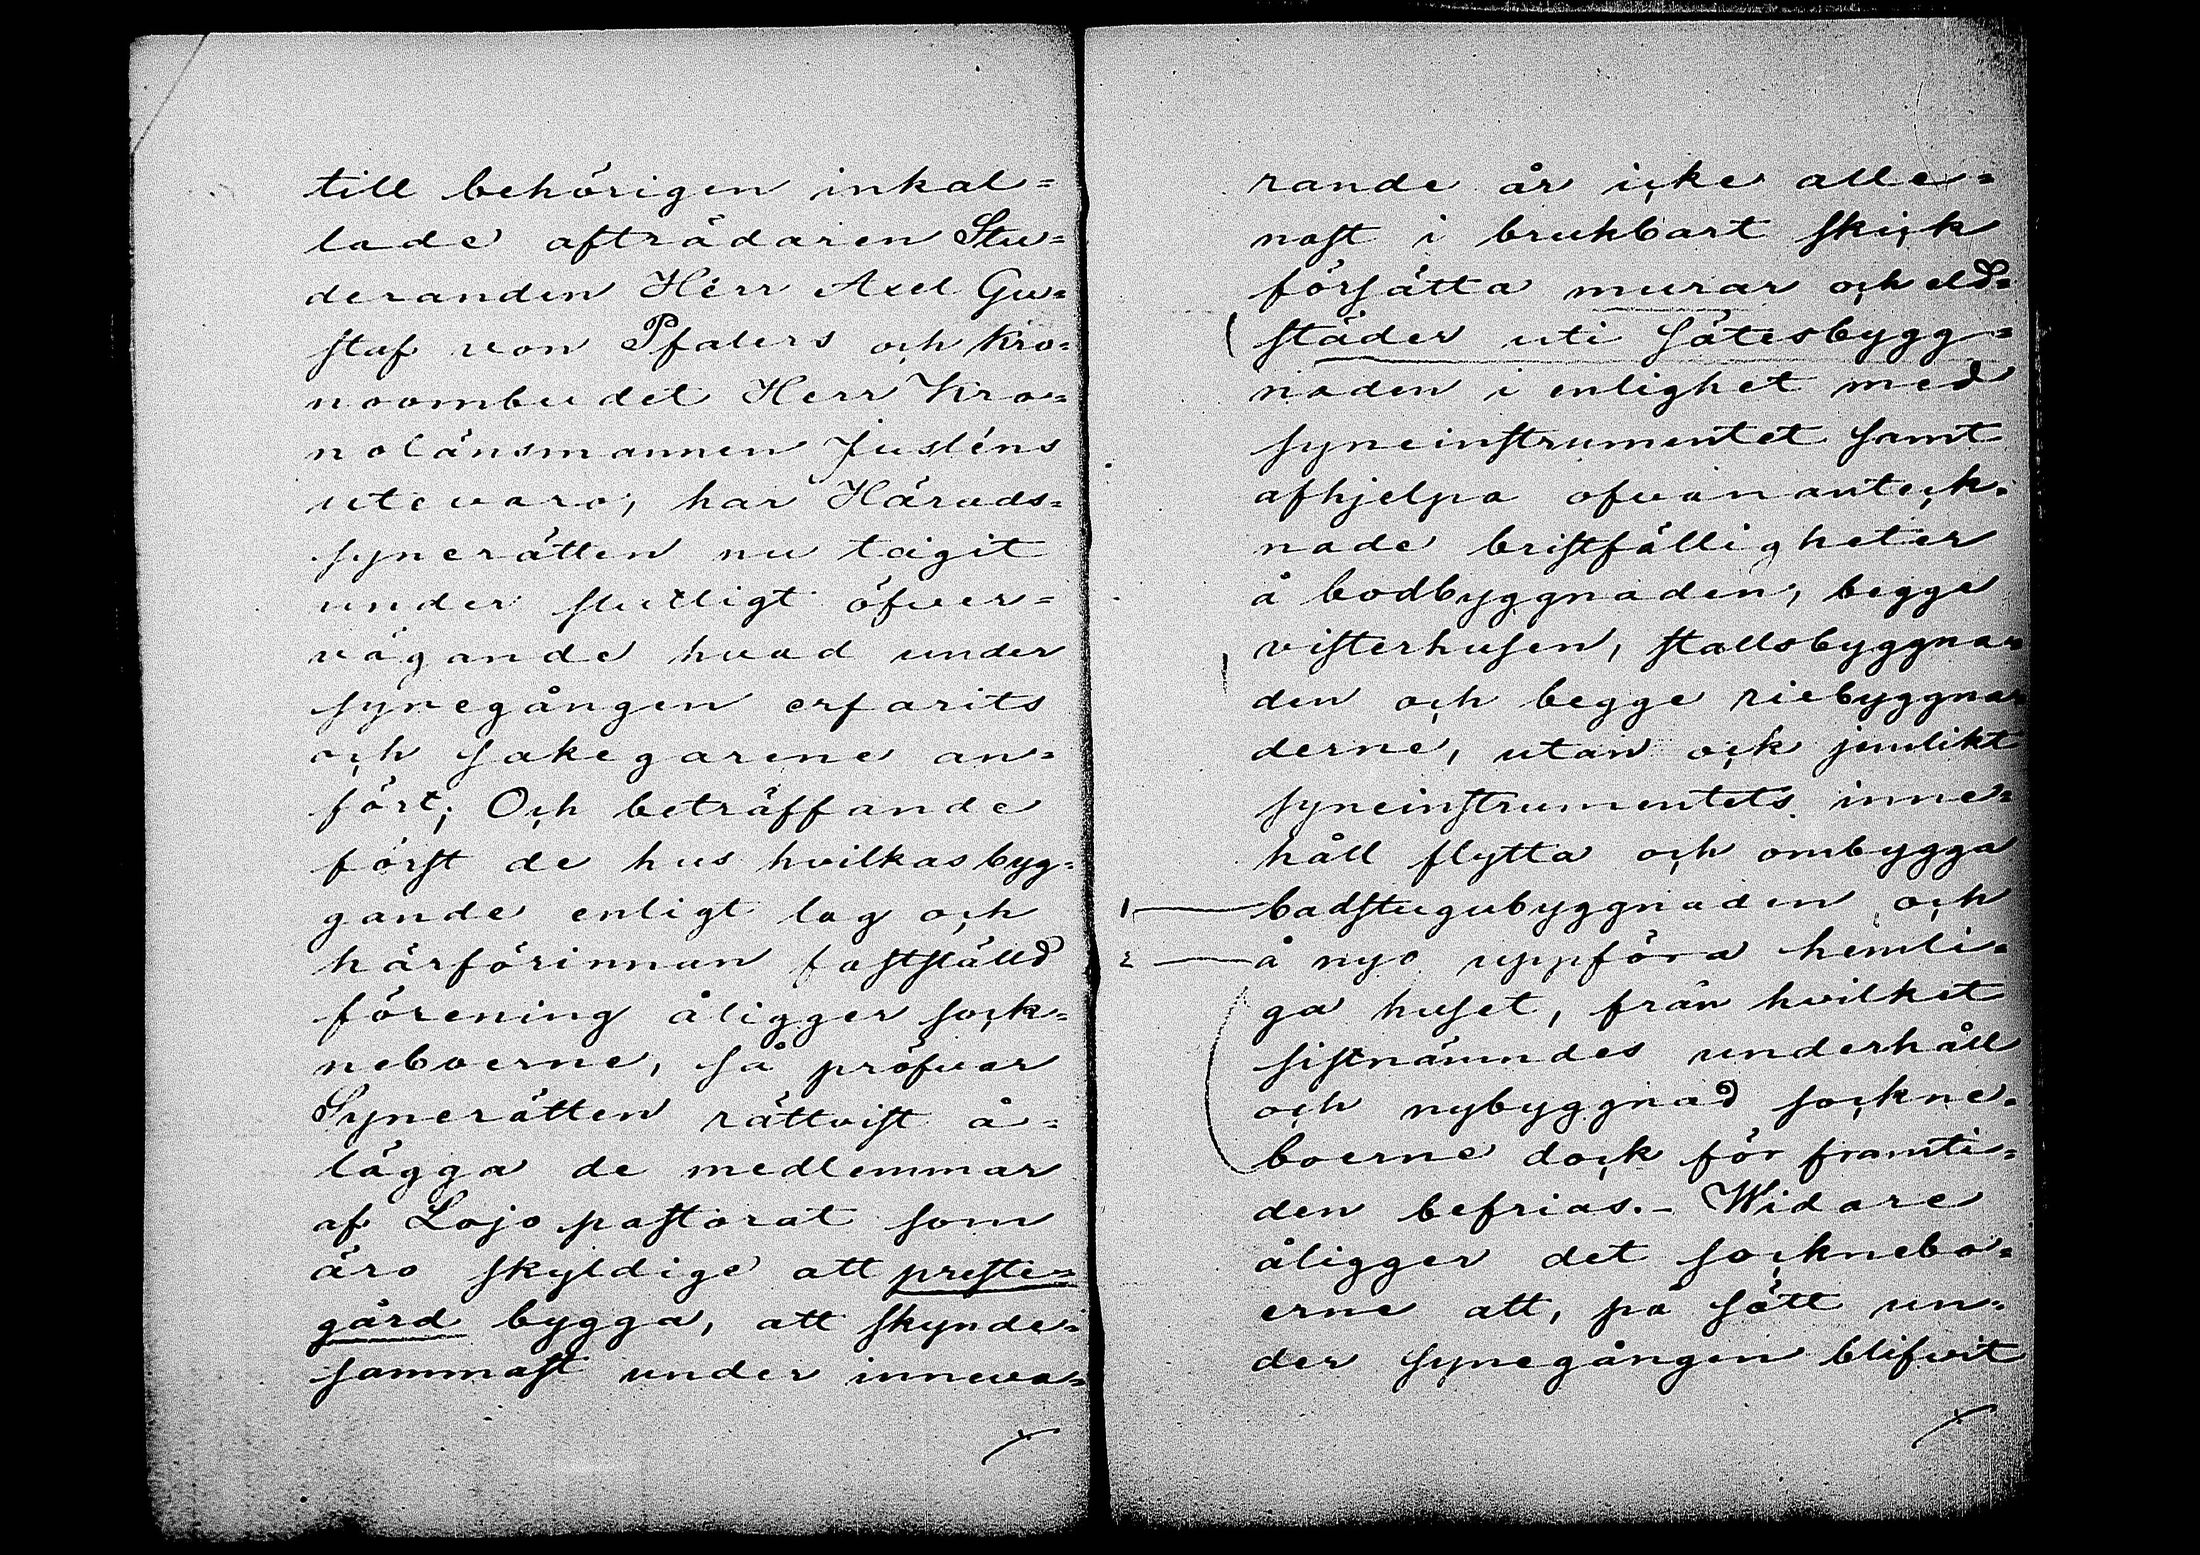 till behörigen inkal=
lade afträdaren Stu=
deranden Herr Axel Gu=
staf von Pfalers och Kro=
noombudet Herr Kro=
nolänsmannen Jusléns
utevaro, har Härads=
synerätten nu tagit
under slutligt öfver=
vägande hvad under
synegången erfarits
och sakegarene an=
fört; Och beträffande
först de hus hvilkas byg=
gande enligt lag och
härförinnan fastställd
förening åligger sock=
neboerne, så pröfvar
Synerätten rättvist å=
lägga de medlemmar
af Lojo pastorat som
äro skyldige att preste=
gård bygga, att skynde=
sammast under inneva=
rande år icke alle=
nast i brukbart skick
försätta murar och eld=
städer uti sätesbygg=
naden i enlighet med
syneinstrumentet samt
afhjelpa ofvan anteck=
nade bristfälligheter
å bodbyggnaden, begge
visterhusen, stallsbyggna=
den och begge riebyggna=
derne, utan ock jemlikt
syneinstrumentets inne=
håll flytta och ombygga
1 badstugubyggnaden och
2 å nyo uppföra hemli=
ga huset, från hvilket
sistnämndes underhåll
och nybyggnad sockne=
boerne dock för framti=
den befrias.- Widare
åligger det socknebo=
erne att, på sätt un=
der synegången blifvit